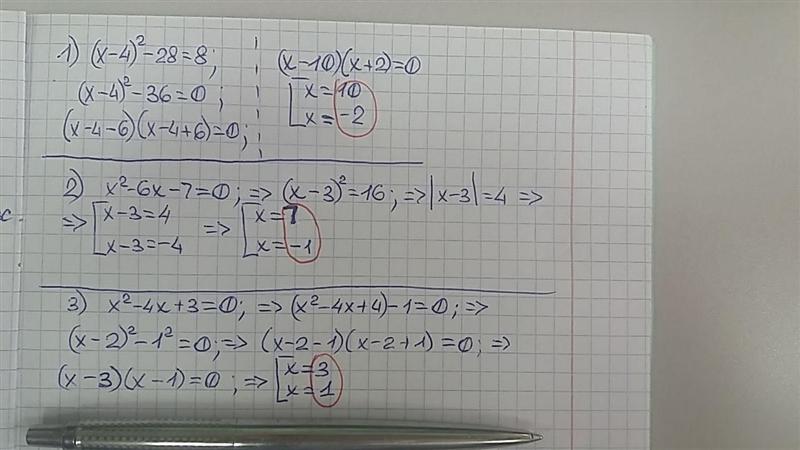 1) (x-4)²-28=8;
(x-4)²-36=0;
(x-4-6)(x-4+6)=0;
(x-10)(x+2)=0
[x=10
x=-2
2) x²-6x-7=0; => (x-3)²=16; => |x-3|=4 =>
=> [x-3=4 => [x=7
x-3=-4 x=-1
3) x²-4x+3=0; => (x²-4x+4)-1=0; =>
(x-2)²-1²=0; => (x-2-1)(x-2+1)=0; =>
(x-3)(x-1)=0; => [x=3
x=1
с.